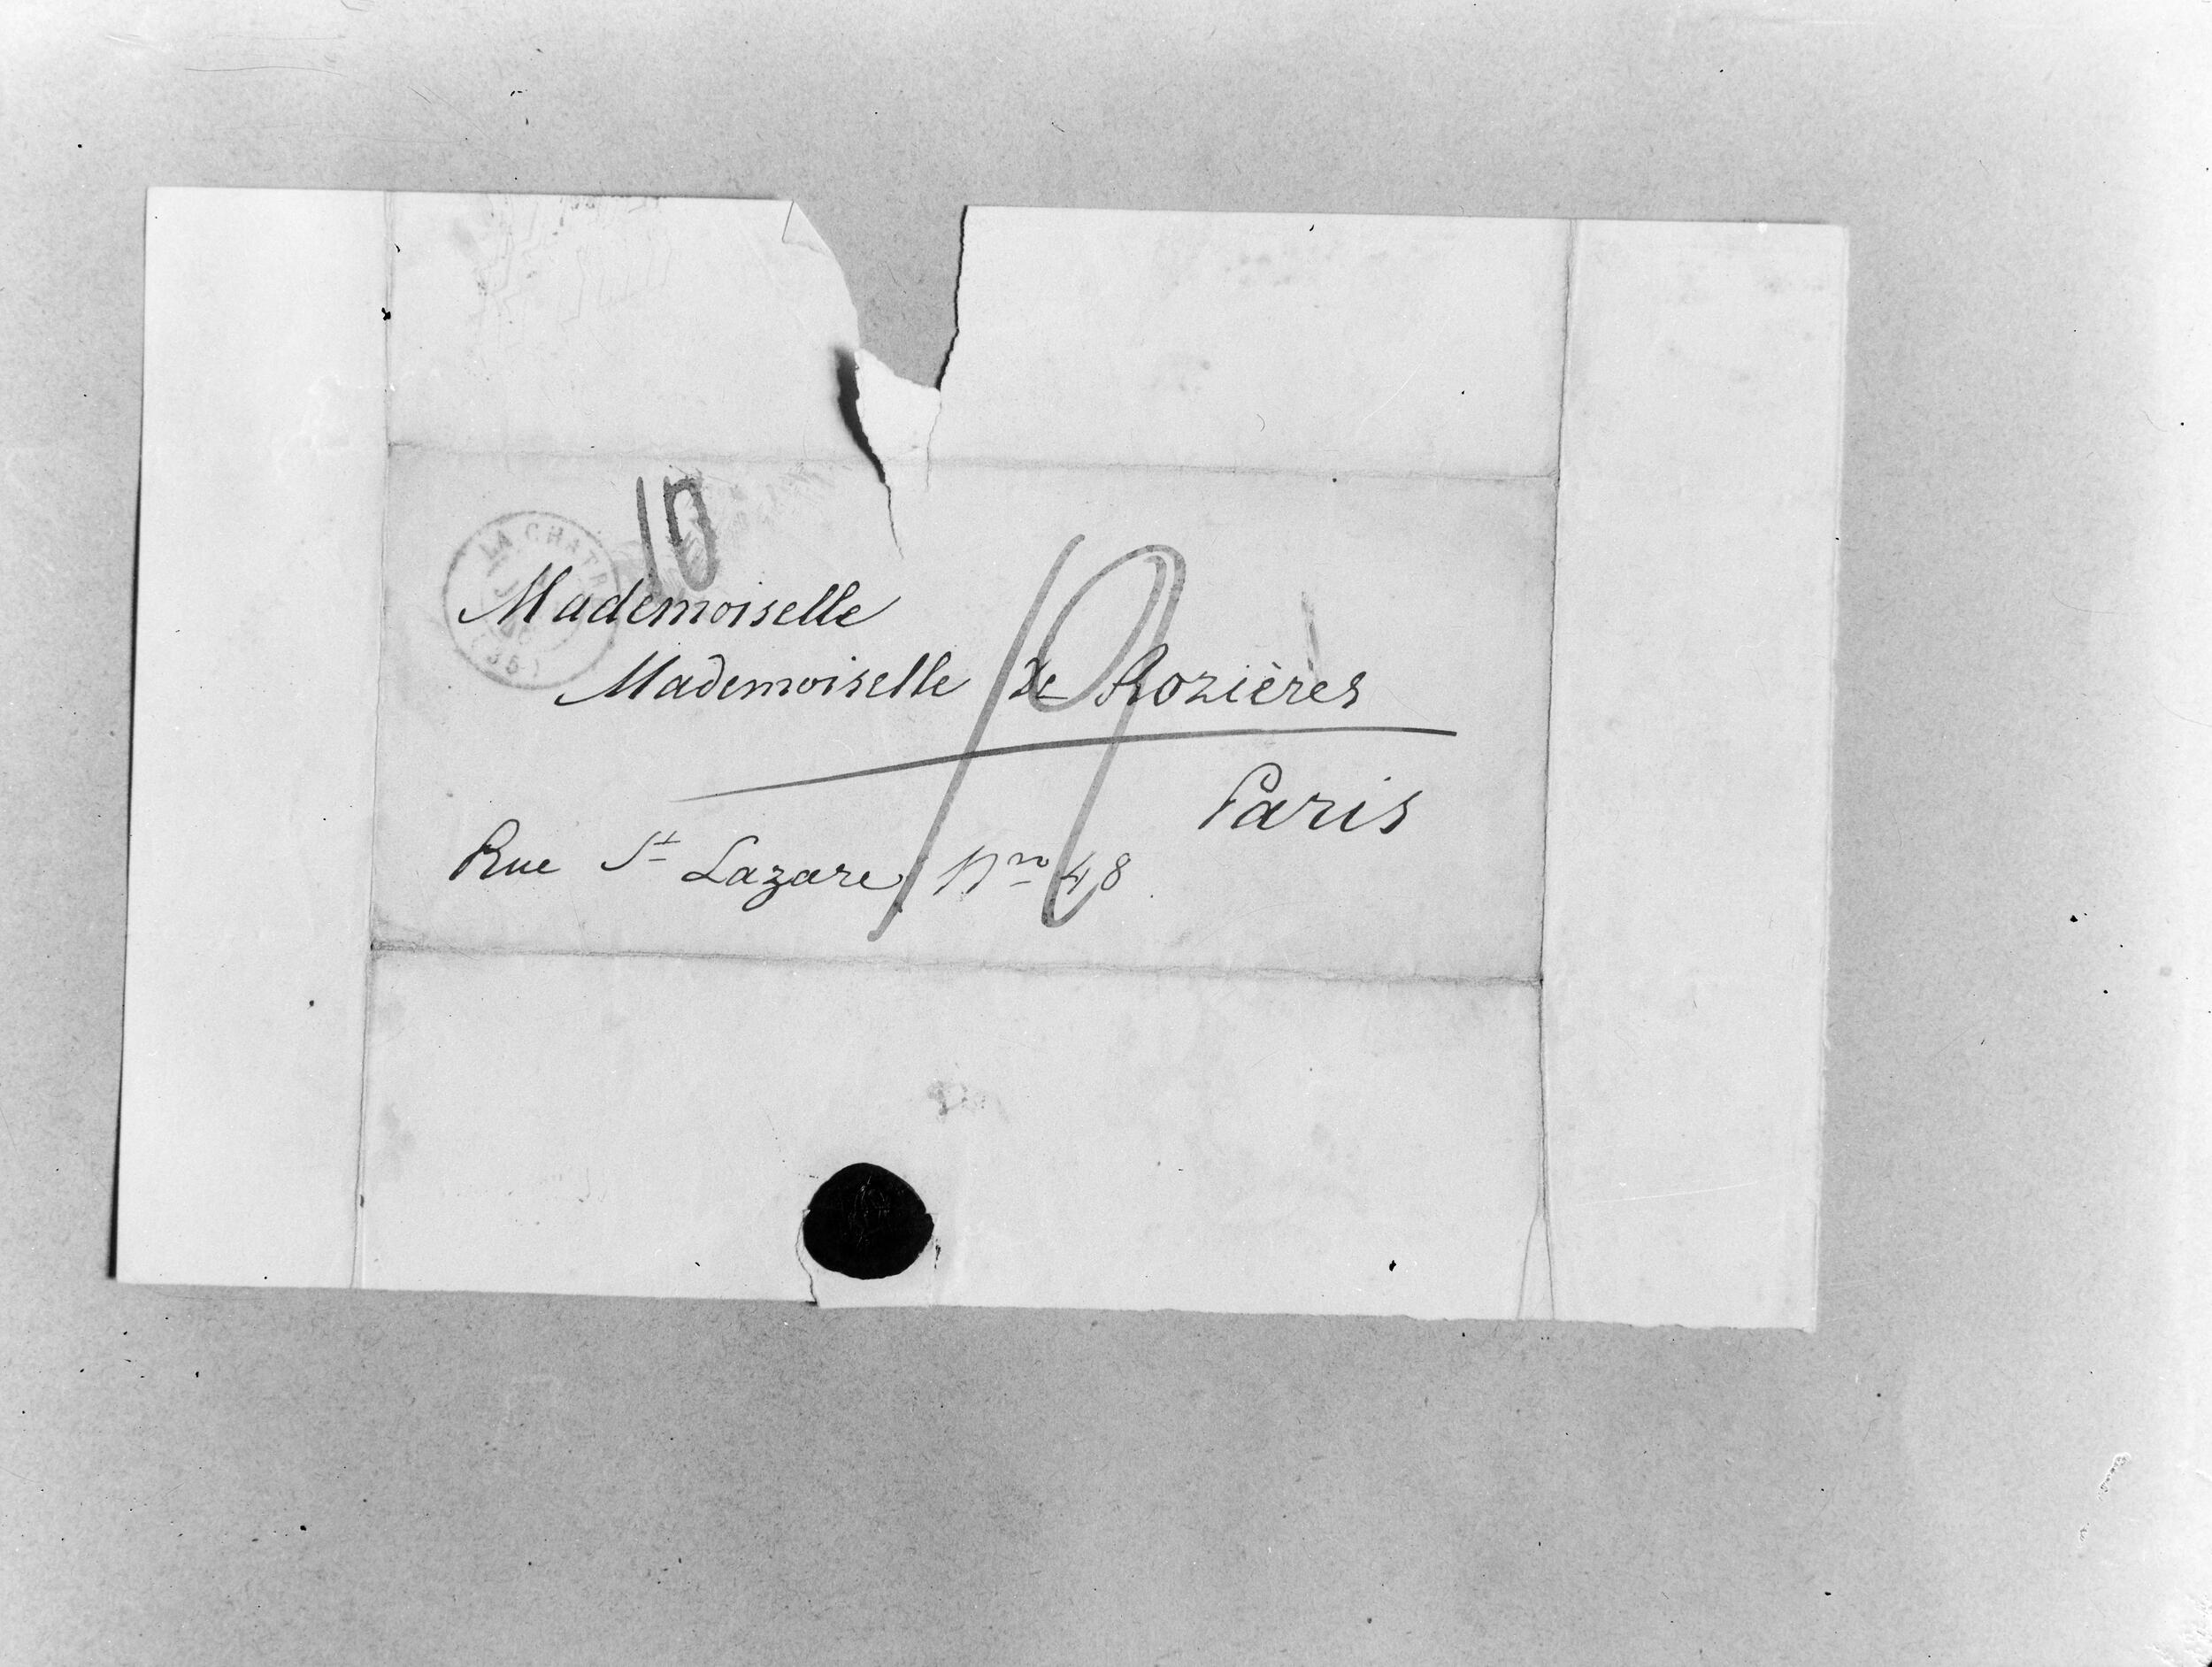 10
LA CHATRE
(35)
Mademoiselle
Mademoiselle de Rozières
Paris
Rue St Lazare, Nro 48.